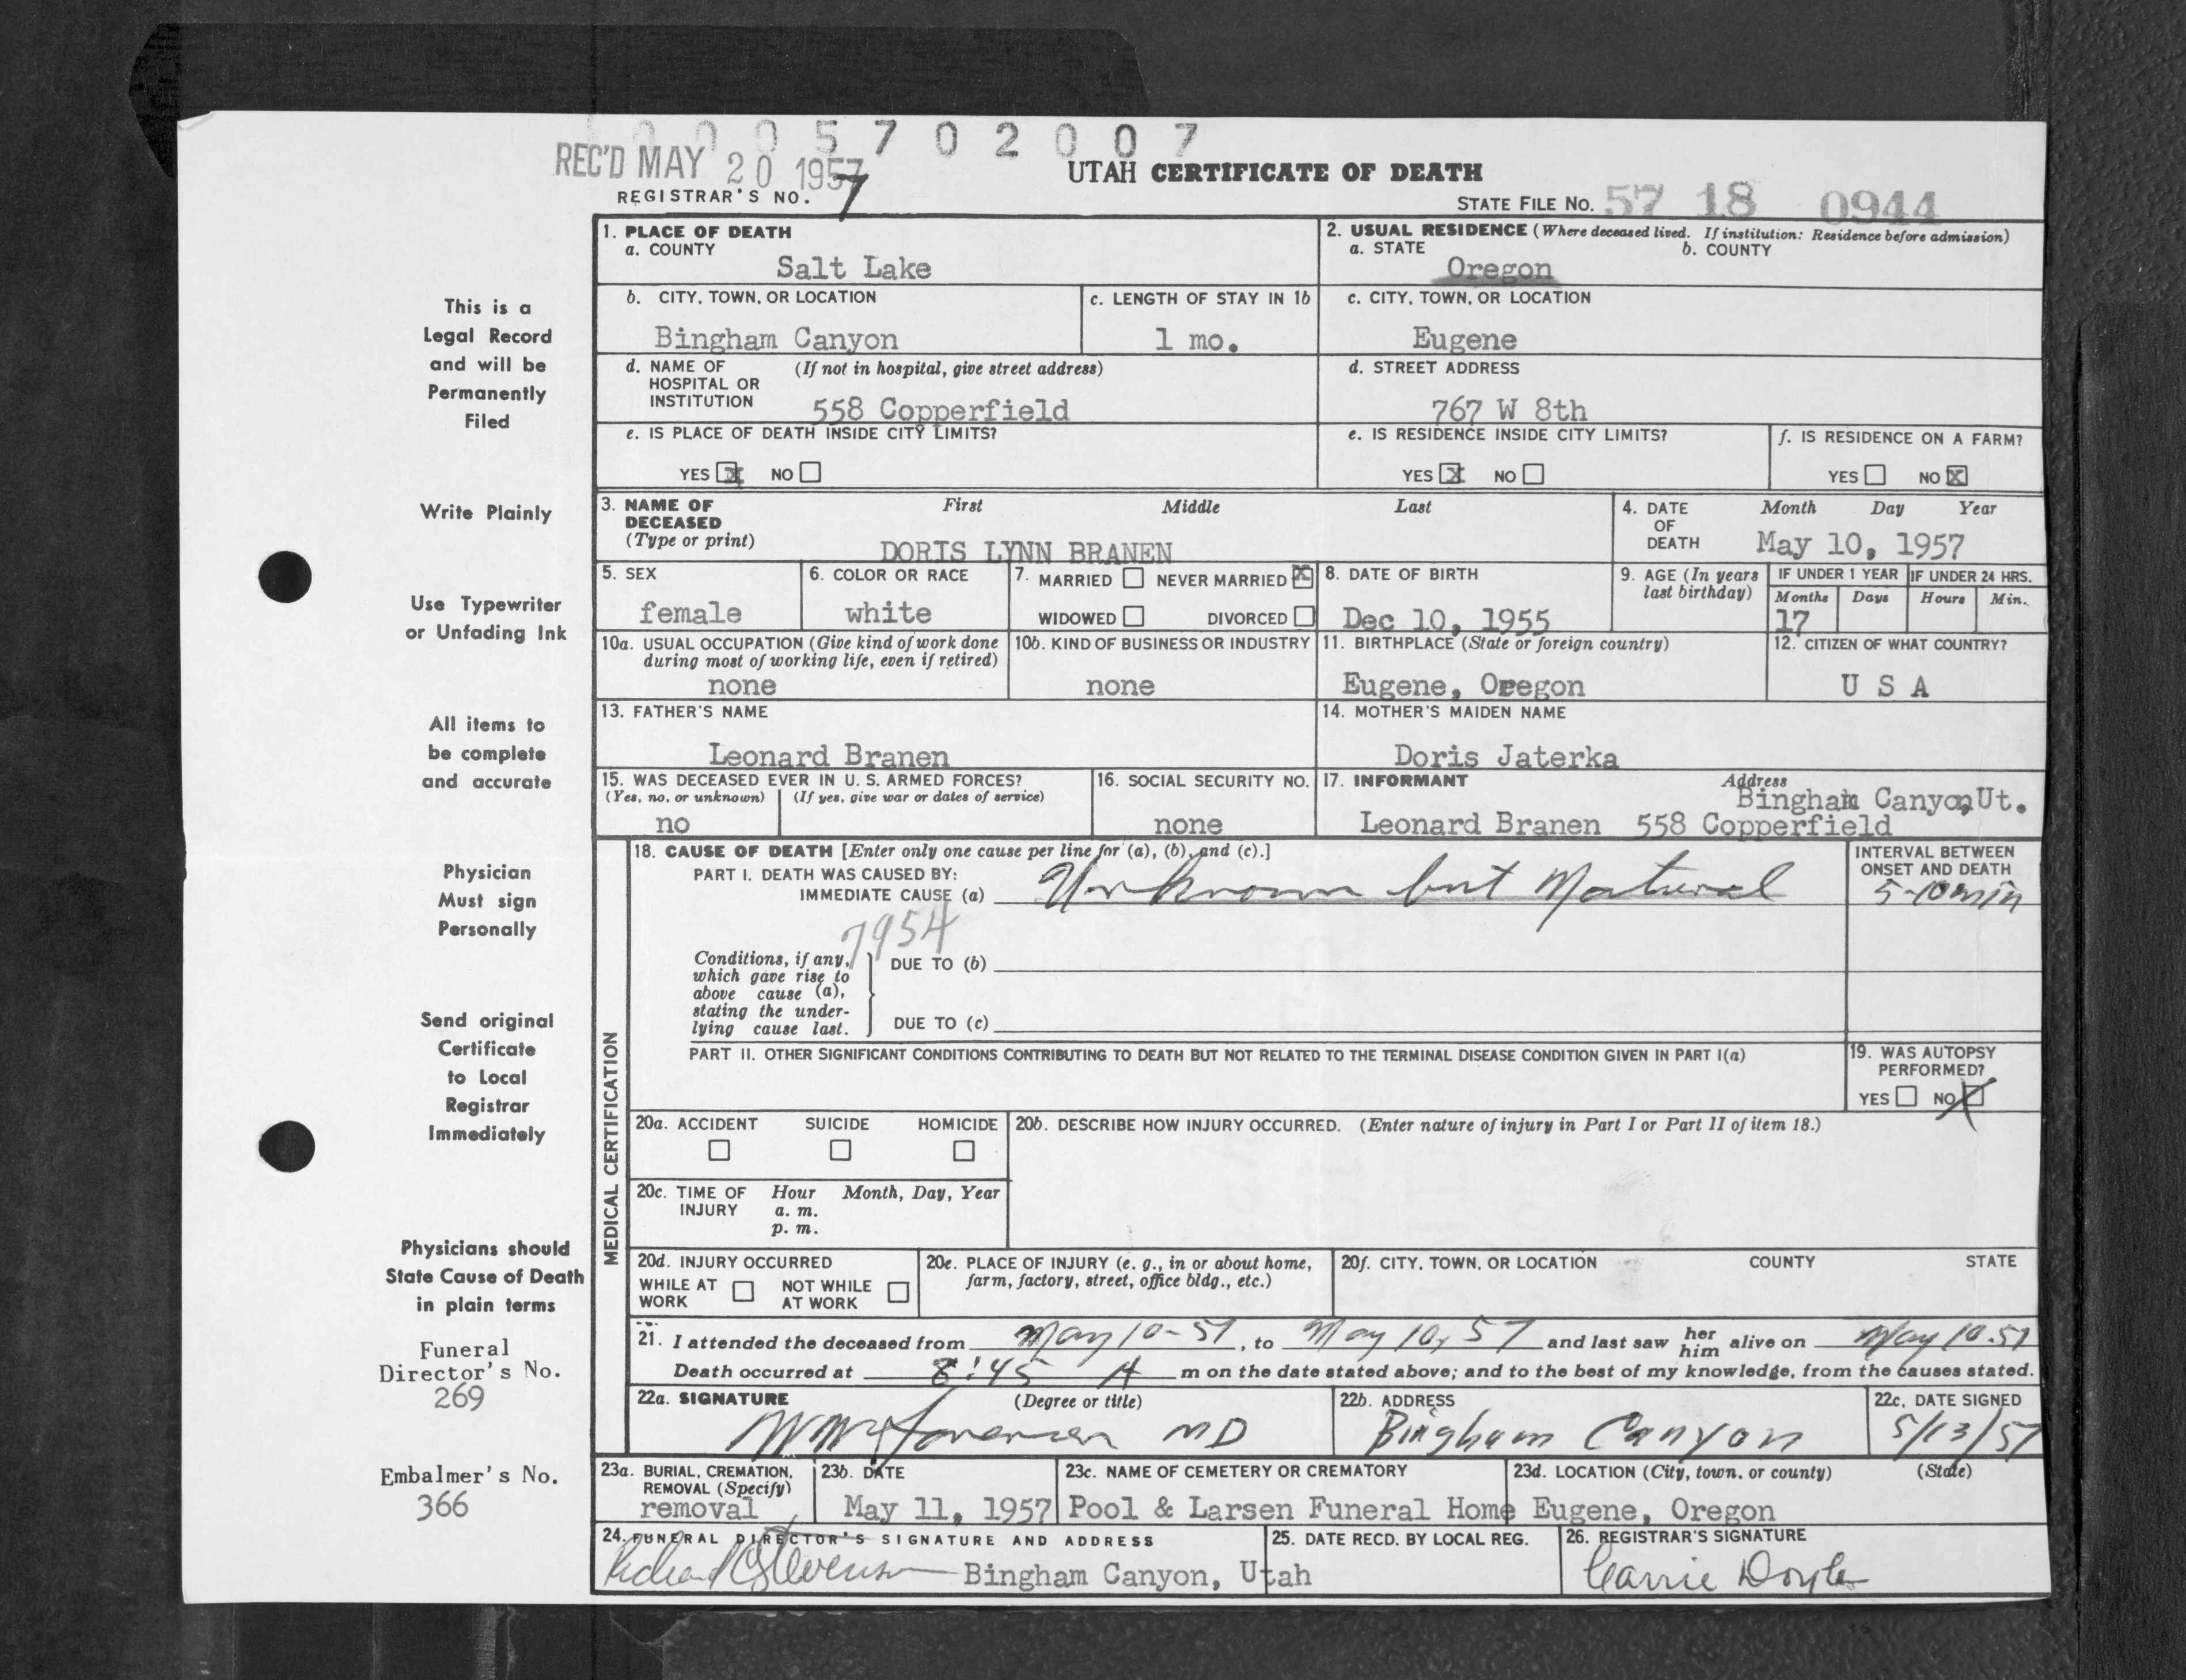 0005702007
REC'D MAY 20 1957
UTAH CERTIFICATE OF DEATH
REGISTRAR'S NO. 7
STATE FILE NO. 57 18 0944
This is a
Legal Record
and will be
Permanently
Filed
Write Plainly
Use Typewriter
or Unfading Ink
All items to
be complete
and accurate
Physician
Must sign
Personally
Send original
Certificate
to Local
Registrar
Immediately
Physicians should
State Cause of Death
in plain terms
Funeral
Director's No.
269
Embalmer's No.
366
1. PLACE OF DEATH
a. COUNTY
Salt Lake
2. USUAL RESIDENCE (Where deceased lived. If institution: Residence before admission)
a. STATE b. COUNTY
Oregon
b. CITY, TOWN, OR LOCATION
Bingham Canyon
c. LENGTH OF STAY IN 1b
1 mo.
c. CITY, TOWN, OR LOCATION
Eugene
d. NAME OF (If not in hospital, give street address)
HOSPITAL OR
INSTITUTION
558 Copperfield
d. STREET ADDRESS
767 W 8th
e. IS PLACE OF DEATH INSIDE CITY LIMITS?
YES X NO
e. IS RESIDENCE INSIDE CITY LIMITS?
YES X NO
f. IS RESIDENCE ON A FARM?
YES NO X
3. NAME OF First Middle Last
DECEASED
(Type or print)
DORIS LYNN BRANEN
4. DATE Month Day Year
OF
DEATH
May 10, 1957
5. SEX
female
6. COLOR OR RACE
white
7. MARRIED NEVER MARRIED X
WIDOWED DIVORCED
8. DATE OF BIRTH
Dec 10, 1955
9. AGE (In years
last birthday)
IF UNDER 1 YEAR IF UNDER 24 HRS.
Months Days Hours Min.
17
10a. USUAL OCCUPATION (Give kind of work done
during most of working life, even if retired)
none
10b. KIND OF BUSINESS OR INDUSTRY
none
11. BIRTHPLACE (State or foreign country)
Eugene, Oregon
12. CITIZEN OF WHAT COUNTRY?
U S A
13. FATHER'S NAME
Leonard Branen
14. MOTHER'S MAIDEN NAME
Doris Jaterka
15. WAS DECEASED EVER IN U. S. ARMED FORCES?
(Yes, no, or unknown) (If yes, give war or dates of service)
no
16. SOCIAL SECURITY NO.
none
17. INFORMANT Address
Bingham Canyon, Ut.
Leonard Branen 558 Copperfield
MEDICAL CERTIFICATION
18. CAUSE OF DEATH [Enter only one cause per line for (a), (b), and (c).]
PART I. DEATH WAS CAUSED BY:
IMMEDIATE CAUSE (a) Unknown but Natural
INTERVAL BETWEEN
ONSET AND DEATH
5-10 min
7954
Conditions, if any,
which gave rise to
above cause (a),
stating the under-
lying cause last.
DUE TO (b)
DUE TO (c)
PART II. OTHER SIGNIFICANT CONDITIONS CONTRIBUTING TO DEATH BUT NOT RELATED TO THE TERMINAL DISEASE CONDITION GIVEN IN PART I(a)
19. WAS AUTOPSY
PERFORMED?
YES NO X
20a. ACCIDENT SUICIDE HOMICIDE
20b. DESCRIBE HOW INJURY OCCURRED. (Enter nature of injury in Part I or Part II of item 18.)
20c. TIME OF Hour Month, Day, Year
INJURY a. m.
p. m.
20d. INJURY OCCURRED
WHILE AT NOT WHILE
WORK AT WORK
20e. PLACE OF INJURY (e. g., in or about home,
farm, factory, street, office bldg., etc.)
20f. CITY, TOWN, OR LOCATION COUNTY STATE
21. I attended the deceased from May 10-57, to May 10, 57 and last saw her him alive on May 10.57
Death occurred at 8:45 A m on the date stated above; and to the best of my knowledge, from the causes stated.
22a. SIGNATURE (Degree or title)
MD
22b. ADDRESS
Bingham Canyon
22c. DATE SIGNED
5/13/57
23a. BURIAL, CREMATION,
REMOVAL (Specify)
removal
23b. DATE
May 11, 1957
23c. NAME OF CEMETERY OR CREMATORY
Pool & Larsen Funeral Home
23d. LOCATION (City, town, or county) (State)
Eugene, Oregon
24. FUNERAL DIRECTOR'S SIGNATURE AND ADDRESS
Richard C Stevenson Bingham Canyon, Utah
25. DATE RECD. BY LOCAL REG.
26. REGISTRAR'S SIGNATURE
Carrie Doyle